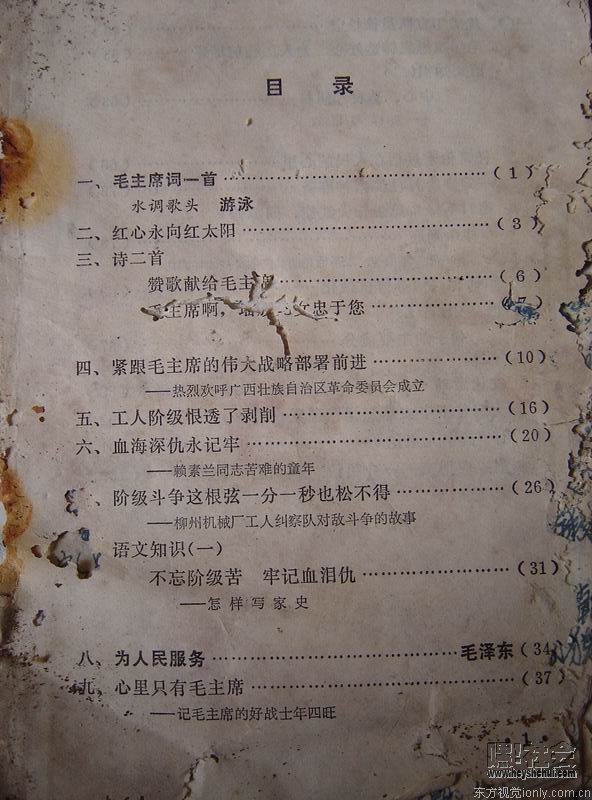 目 录
一、毛主席词一首……………………………（1）
水调歌头 游泳
二、红心永向红太阳……………………………（3）
三、诗二首
赞歌献给毛主席……………………………（6）
毛主席啊，忠于您……………………（7）
四、紧跟毛主席的伟大战略部署前进……………（10）
——热烈欢呼广西壮族自治区革命委员会成立
五、工人阶级恨透了剥削……………………（16）
六、血海深仇永记牢……………………………（20）
——赖素兰同志苦难的童年
、阶级斗争这根弦一分一秒也松不得…………（26）
——柳州机械厂工人纠察队对敌斗争的故事
语文知识（一）
不忘阶级苦 牢记血泪仇………………（31）
——怎样写家史
八、为人民服务……………………毛泽东（34
九、心里只有毛主席……………………………（37）
——记毛主席的好战士年四旺
·1·
黑社会
www.heyshehui.com
东方视觉ionly.com.cn